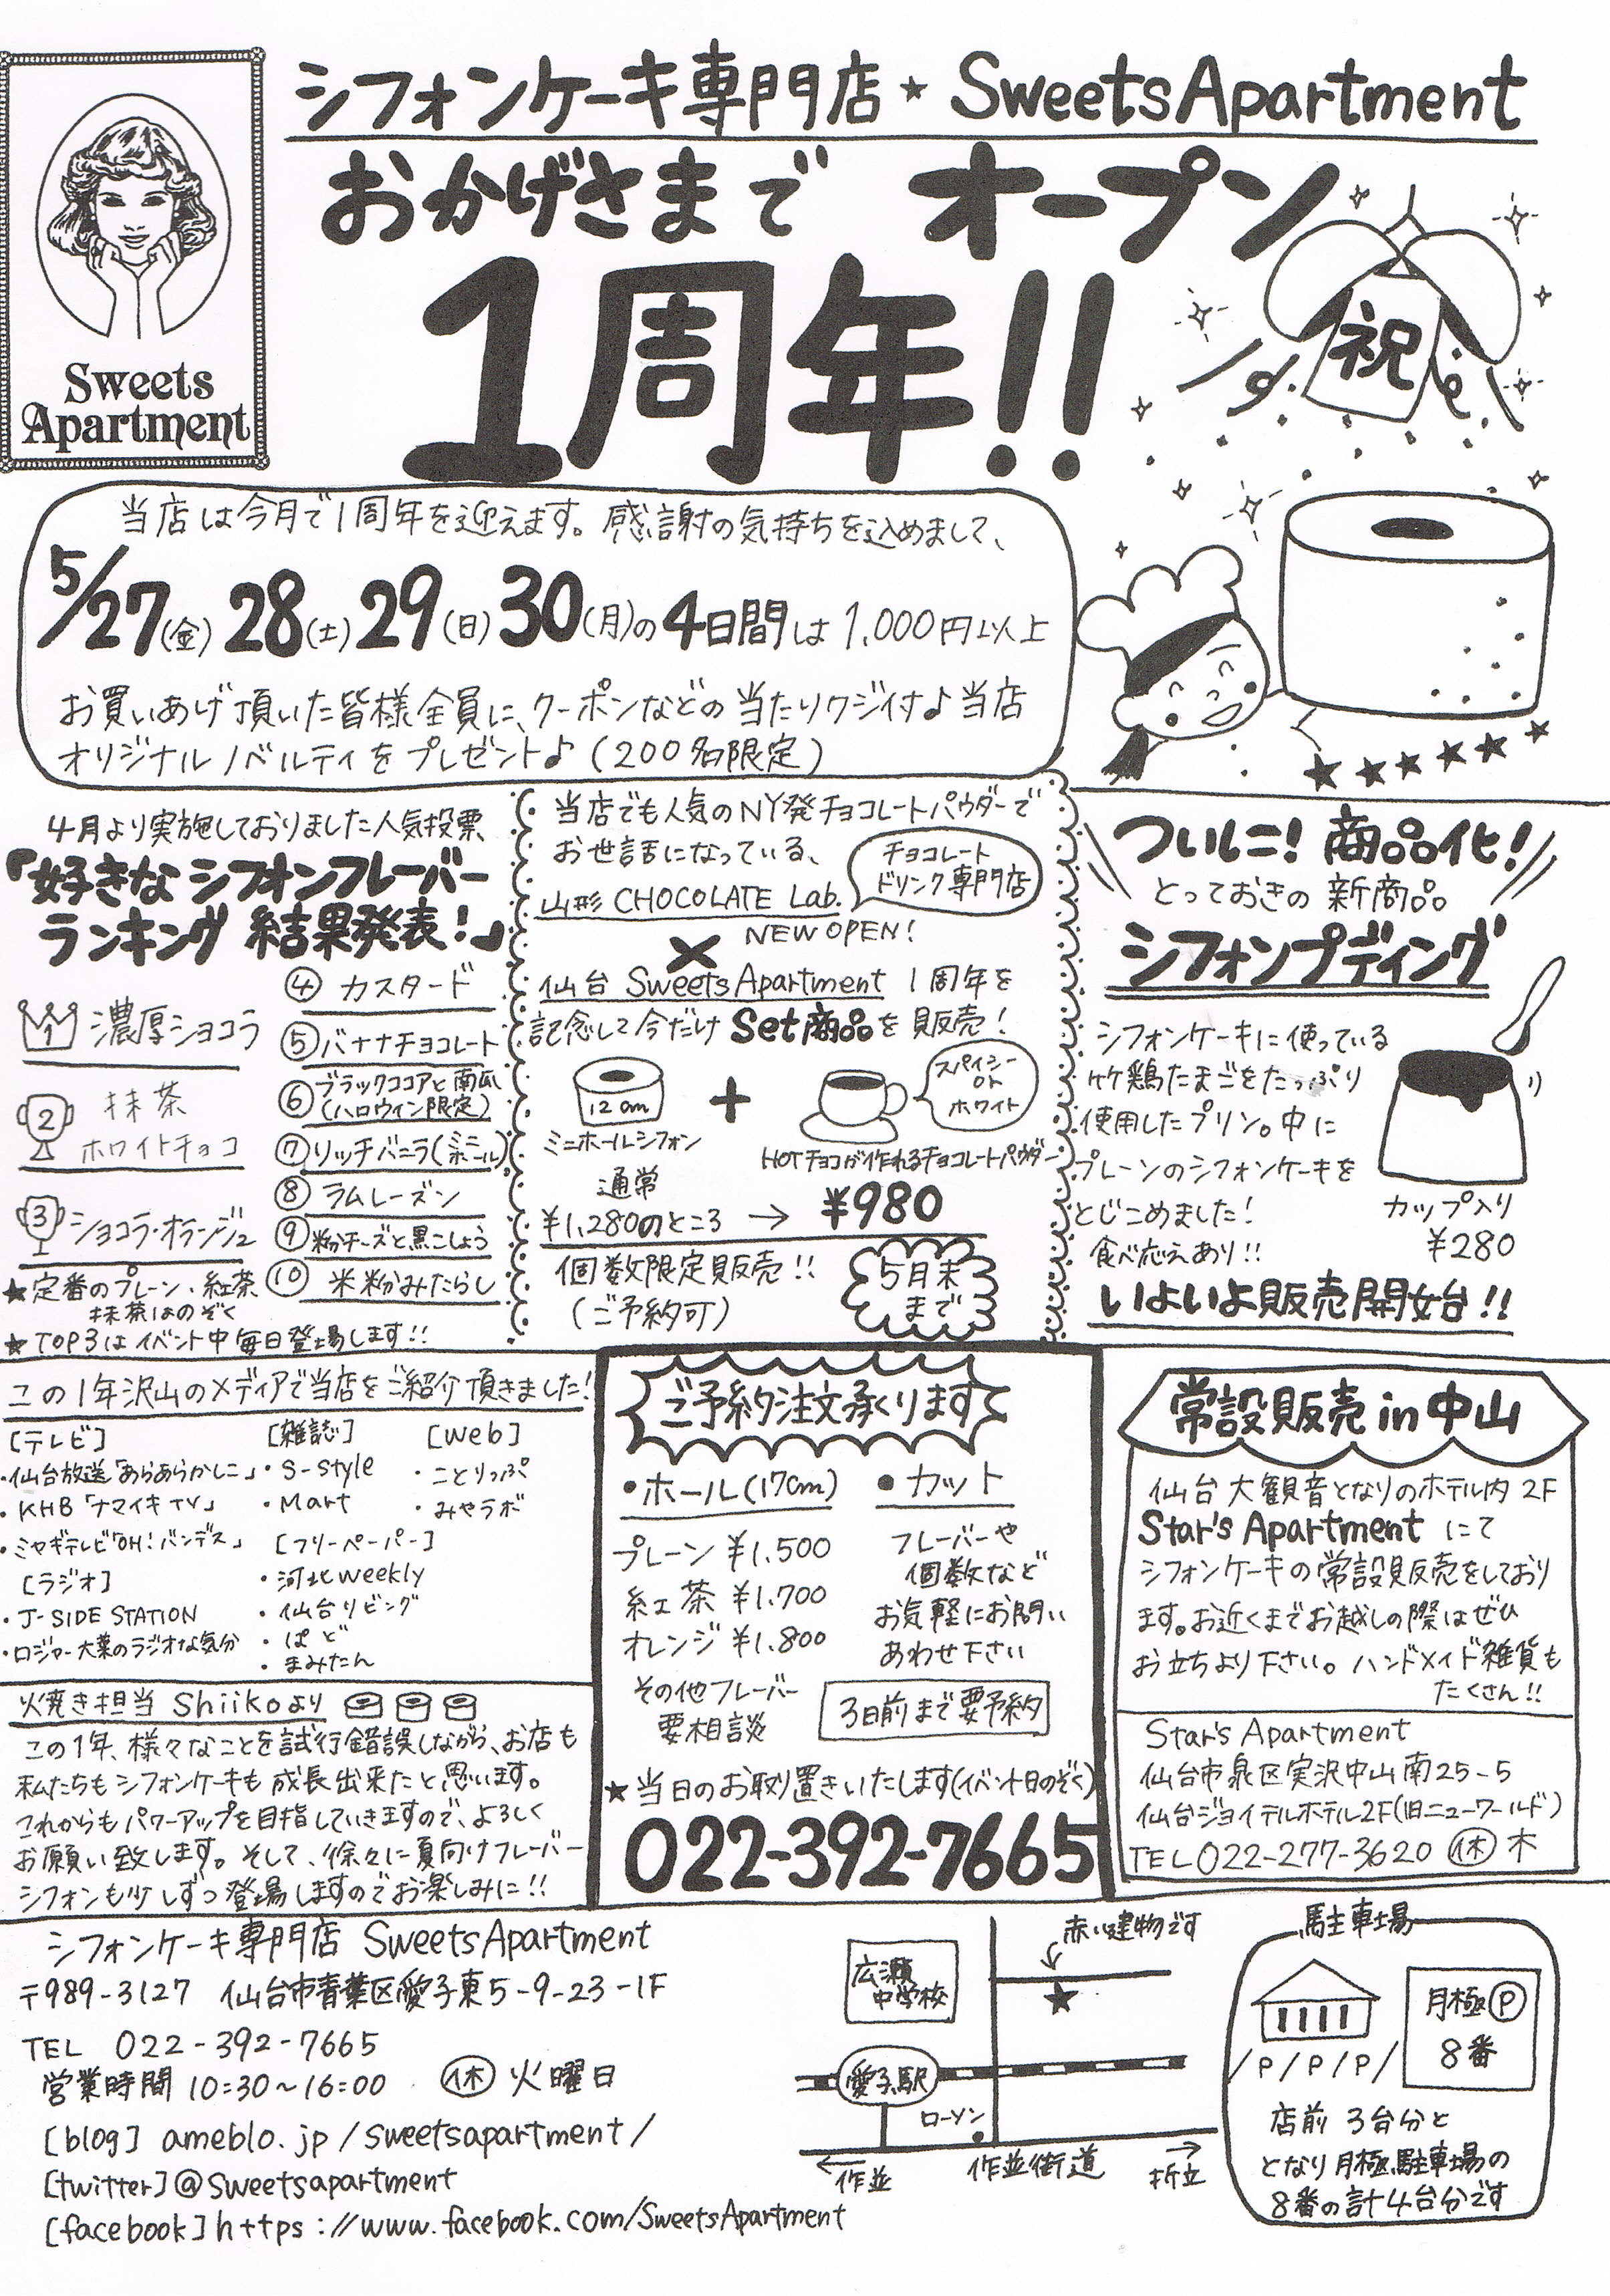 シフォンケーキ専門店★SweetsApartment
おかげさまで オープン
1周年!!
祝
Sweets
Apartment
当店は今月で1周年を迎えます。感謝の気持ちを込めまして、
5/27(金)28(土)29(日)30(月)の4日間は1,000円以上
お買いあげ頂いた皆様全員に、クーポンなどの当たりクジ付♪当店
オリジナルノベルティをプレゼント♪(200名限定)
4月より実施しておりました人気投票
『好きなシフォンフレーバー
ランキング 結果発表!』
1 濃厚ショコラ
2 抹茶
ホワイトチョコ
3 ショコラ・オランジュ
④ カスタード
⑤ バナナチョコレート
⑥ ブラックココアと南瓜
(ハロウィン限定)
⑦ リッチバニラ(ミニホール)
⑧ ラムレーズン
⑨ 粉チーズと黒こしょう
⑩ 米粉みたらし
★定番のプレーン、紅茶
抹茶はのぞく
★TOP3はイベント中毎日登場します!!
当店でも人気のNY発チョコレートパウダーで
お世話になっている、
山形 CHOCOLATE Lab.
チョコレート
ドリンク専門店
NEW OPEN!
×
仙台 SweetsApartment 1周年を
記念して今だけ Set商品を販売!
12cm
ミニホールシフォン
+
スパイシー
or
ホワイト
HOTチョコが作れるチョコレートパウダー
通常
¥1,280のところ → ¥980
個数限定販売!!
(ご予約可)
5月末
まで
ついに!商品化!
とっておきの新商品
シフォンプディング
シフォンケーキに使っている
竹鶏たまごをたっぷり
使用したプリン。中に
プレーンのシフォンケーキを
とじこめました!
食べ応えあり!!
カップ入り
¥280
いよいよ販売開始!!
この1年沢山のメディアで当店をご紹介頂きました!
[テレビ]
・仙台放送「あらあらかしこ」
・KHB「ナマイキTV」
・ミヤギテレビ「OH!バンデス」
[ラジオ]
・J-SIDE STATION
・ロジャー大葉のラジオな気分
[雑誌]
・S-style
・Mart
[フリーペーパー]
・河北weekly
・仙台リビング
・ぱど
・まみたん
[web]
・ことりっぷ
・みやラボ
火焼き担当 Shiikoより
この1年、様々なことを試行錯誤しながら、お店も
私たちもシフォンケーキも成長出来たと思います。
これからもパワーアップを目指していきますので、よろしく
お願い致します。そして、徐々に夏向けフレーバー
シフォンも少しずつ登場しますのでお楽しみに!!
ご予約注文承ります
●ホール(17cm)
プレーン ¥1,500
紅茶 ¥1,700
オレンジ ¥1,800
その他フレーバー
要相談
●カット
フレーバーや
個数など
お気軽にお問い
あわせ下さい
3日前まで要予約
★当日のお取り置きいたします(イベント日のぞく)
022-392-7665
常設販売in中山
仙台大観音となりのホテル内2F
Star's Apartment にて
シフォンケーキの常設販売をしており
ます。お近くまでお越しの際はぜひ
お立ちより下さい。ハンドメイド雑貨も
たくさん!!
Star's Apartment
仙台市泉区実沢中山南25-5
仙台ジョイテルホテル2F(旧ニューワールド)
TEL 022-277-3620 ㊡ 木
シフォンケーキ専門店 SweetsApartment
〒989-3127 仙台市青葉区愛子東5-9-23-1F
TEL 022-392-7665
営業時間 10:30~16:00 ㊡ 火曜日
[blog] ameblo.jp/sweetsapartment/
[twitter]@sweetsapartment
[facebook]https://www.facebook.com/SweetsApartment
赤い建物です
広瀬
中学校
★
愛子駅
ローソン
←
作並
作並街道
→
折立
駐車場
/P/P/P/
月極Ⓟ
8番
店前 3台分と
となり月極駐車場の
8番の計4台分です